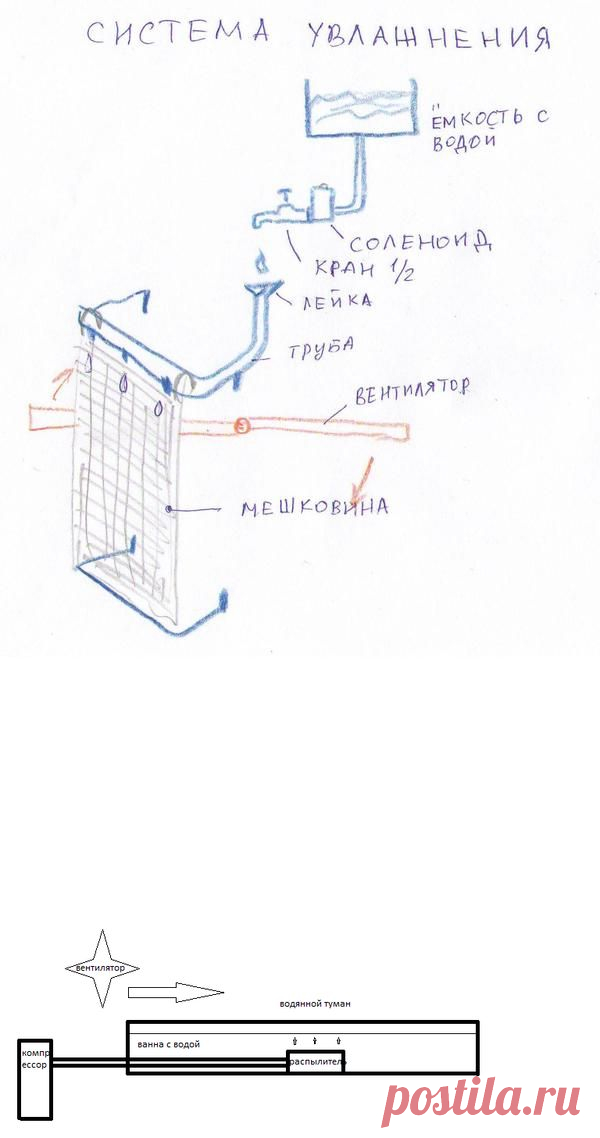 СИСТЕМА УВЛАЖНЕНИЯ
ЁМКОСТЬ С
ВОДОЙ
СОЛЕНОИД
КРАН 1/2
ЛЕЙКА
ТРУБА
ВЕНТИЛЯТОР
МЕШКОВИНА
вентилятор
водянной туман
ванна с водой
компр
ессор
распылитель
postila.ru